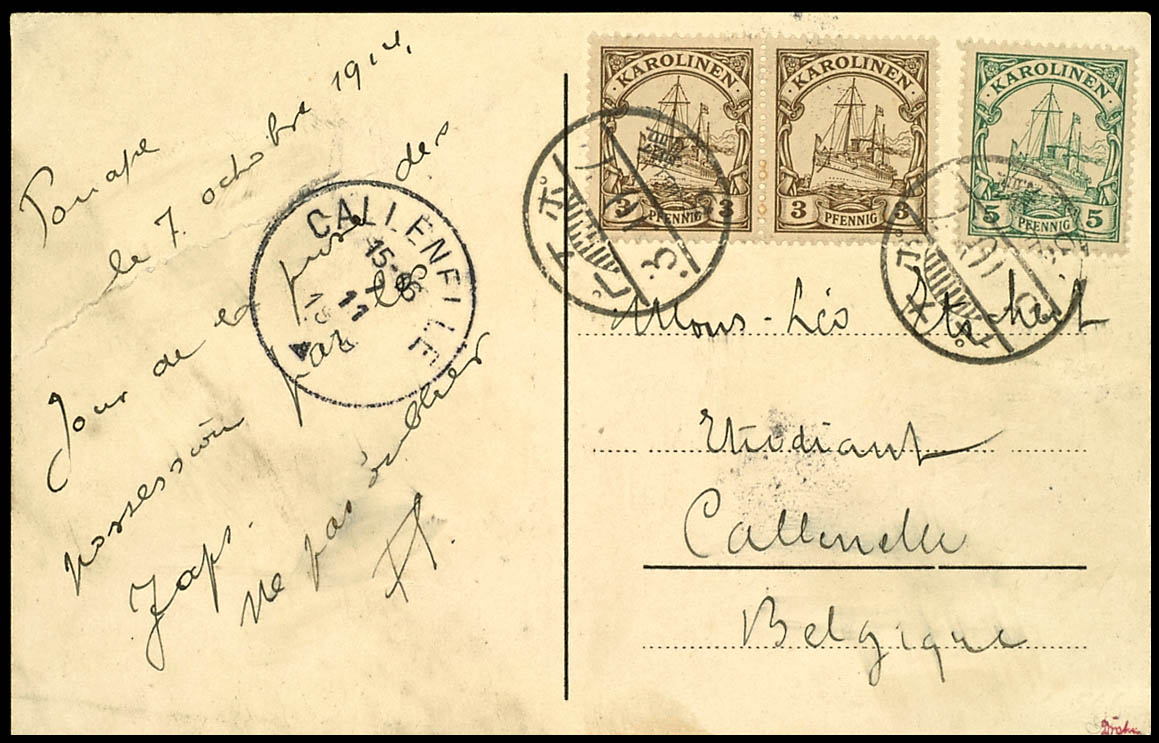 Ponape
le 7 octobre 1914,
Jour de la prise des
possession par les
Japs.
ne pas oublier
CALLENELLE
15-
11
KAROLINEN
3 PFENNIG 3
KAROLINEN
3 PFENNIG 3
KAROLINEN
5 PFENNIG 5
Mons. Léo
Etudiant
Callenelle
Belgique